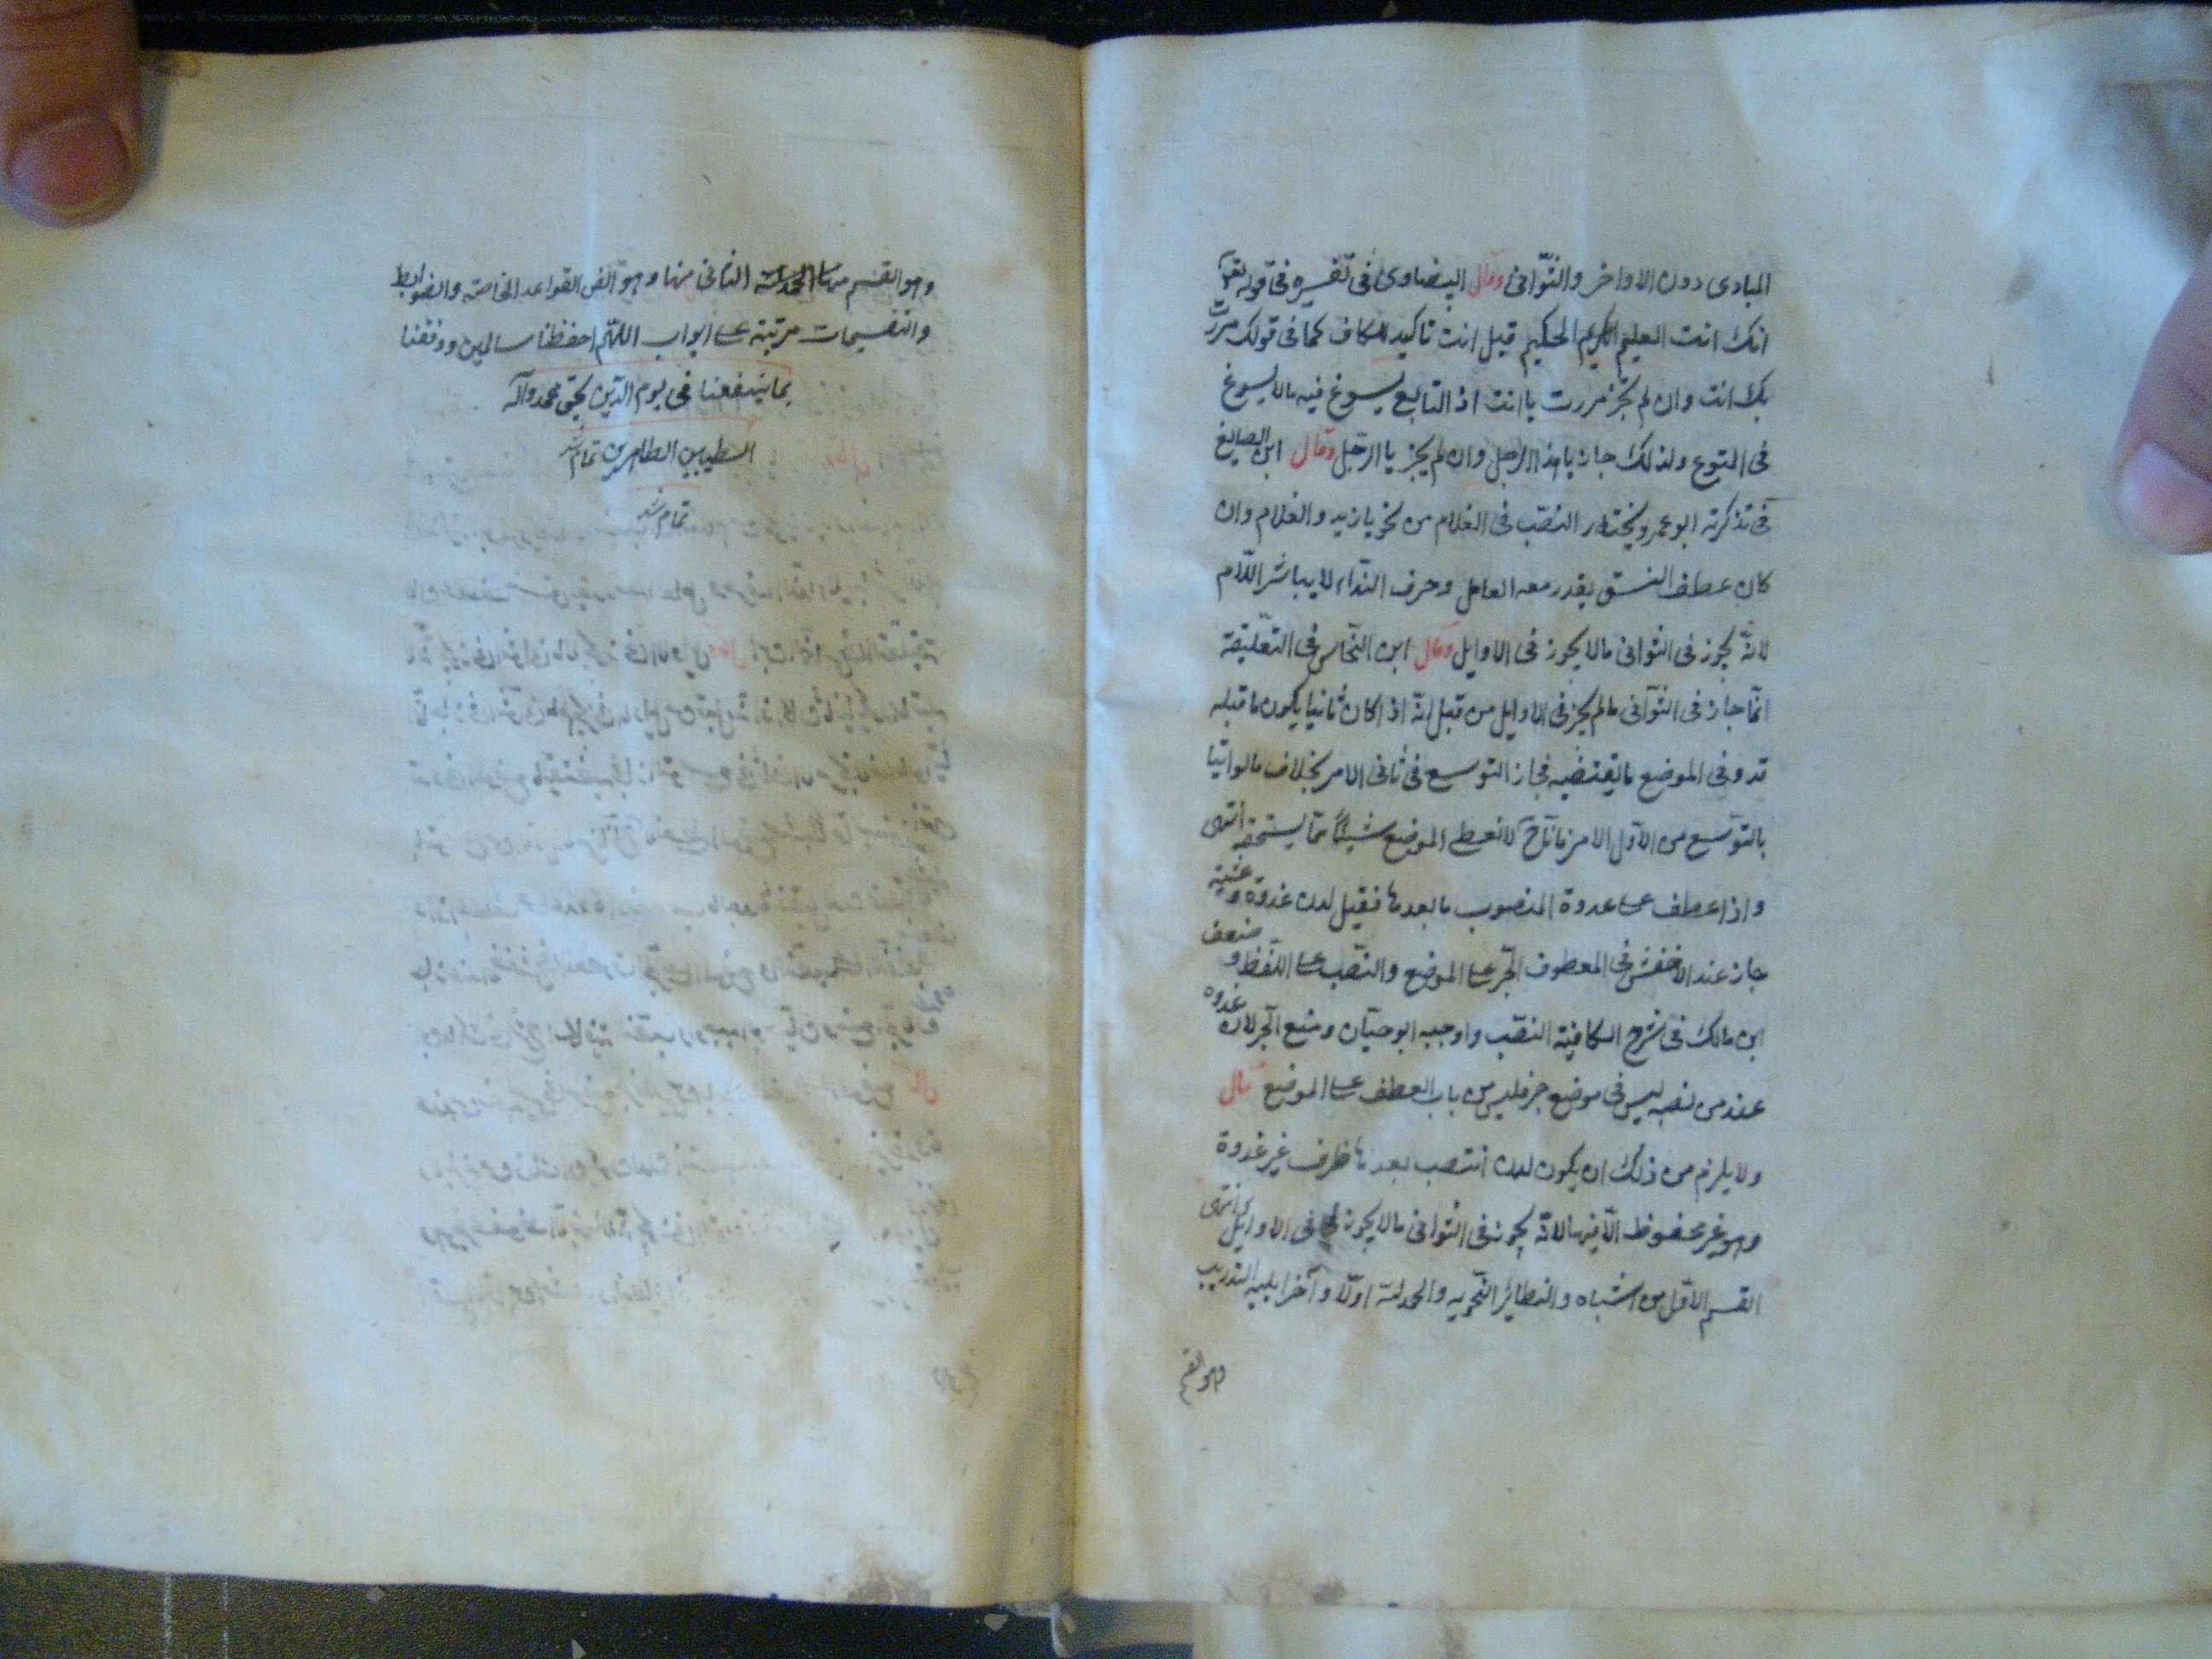 المبادى دون الاواخر والثّوانى وقال البيضاوى فى تفسيره فى قوله تعالى
انك انت العليم الحكيم قيل انت تاكيد للكاف كما فى قولك مررت
بك انت وان لم يجز مررت يا انت اذ التابع يسوغ فيه مالا يسوغ
فى المتبوع ولذلك جاز يا هذا الرجل وان لم يجز يا الرجل وقال ابن الصايغ
فى تذكرته ابو عمرو يختار النصب فى الغلام من نحو يا زيد والغلام وان
كان عطف النسق يقدر معه العامل وحرف النداء لا يباشر اللام
لانّه يجوز فى الثوانى مالا يجوز فى الاوايل وقال ابن النحاس فى التعليقة
انّما جاز فى الثوانى مالم يجز فى الاوايل من قبل انّه اذا كان ثانيا يكون ما قبله
قد وفى الموضع ما يقتضيه فجاز التوسع فى ثانى الامر بخلاف مالو اتينا
بالتوسع من الاول الامر فانّا ح لا نعطى الموضع شيئا ممّا يستحقه انتهى
واذا عطف على غدوة المنصوب ما بعدها فقيل لدن غدوة وعشية
جاز عند الاخفش فى المعطوف الجر على الموضع والنصب على اللفظ وضعف
ابن مالك فى شرح الكافية النصب واوجبه ابو حيان ومنع الجر لان غدوه
عند من نصبه ليس فى موضع جر فليس من باب العطف على الموضع قال
ولا يلزم من ذلك ان يكون لدن انتصب بعدها ظرف غير غدوة
وهو غير محفوظ الّا فيها لانّه يجوز فى الثوانى مالا يجوز فى الاوايل انتهى
القسم الاول من اشباه والنظائر النحويه والحمد لله اولا وآخرا يليه التدريب
وهو القسم
وهو القسم الثانى منها وهو الفن القواعد الخاصة والضوابط
والتقسيمات مرتبة على ابواب اللهم احفظنا سالمين ووفقنا
بما ينفعنا فى يوم الدّين بحقّ محمد وآله
الطيبين الطاهرين تمام شد
تمام شد